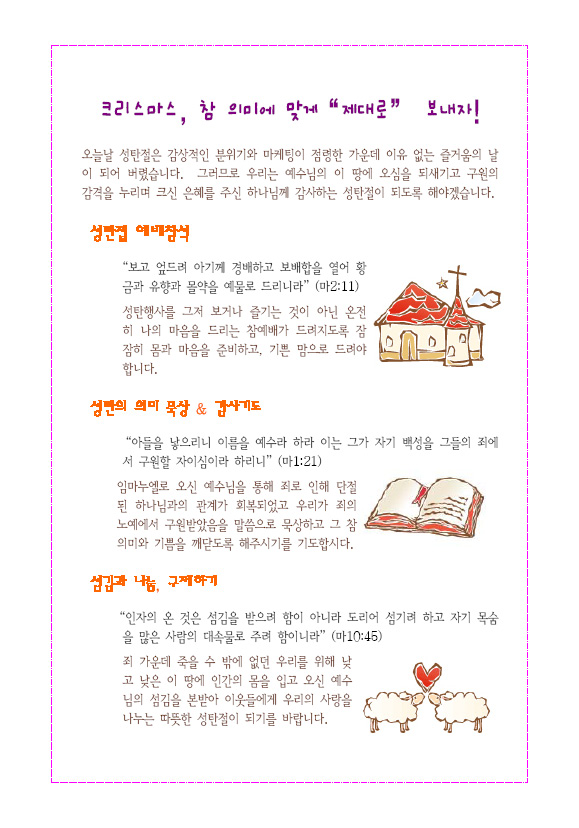 크리스마스, 참 의미에 맞게 “제대로” 보내자!
오늘날 성탄절은 감상적인 분위기와 마케팅이 점령한 가운데 이유 없는 즐거움의 날
이 되어 버렸습니다. 그러므로 우리는 예수님의 이 땅에 오심을 되새기고 구원의
감격을 누리며 크신 은혜를 주신 하나님께 감사하는 성탄절이 되도록 해야겠습니다.
성탄절 예배참석
“보고 엎드려 아기께 경배하고 보배합을 열어 황
금과 유향과 몰약을 예물로 드리니라” (마2:11)
성탄행사를 그저 보거나 즐기는 것이 아닌 온전
히 나의 마음을 드리는 참예배가 드려지도록 잠
잠히 몸과 마음을 준비하고, 기쁜 맘으로 드려야
합니다.
성탄의 의미 묵상 & 감사기도
“아들을 낳으리니 이름을 예수라 하라 이는 그가 자기 백성을 그들의 죄에
서 구원할 자이심이라 하리니” (마1:21)
임마누엘로 오신 예수님을 통해 죄로 인해 단절
된 하나님과의 관계가 회복되었고 우리가 죄의
노예에서 구원받았음을 말씀으로 묵상하고 그 참
의미와 기쁨을 깨닫도록 해주시기를 기도합시다.
섬김과 나눔, 구제하기
“인자의 온 것은 섬김을 받으려 함이 아니라 도리어 섬기려 하고 자기 목숨
을 많은 사람의 대속물로 주려 함이니라” (마10:45)
죄 가운데 죽을 수 밖에 없던 우리를 위해 낮
고 낮은 이 땅에 인간의 몸을 입고 오신 예수
님의 섬김을 본받아 이웃들에게 우리의 사랑을
나누는 따뜻한 성탄절이 되기를 바랍니다.